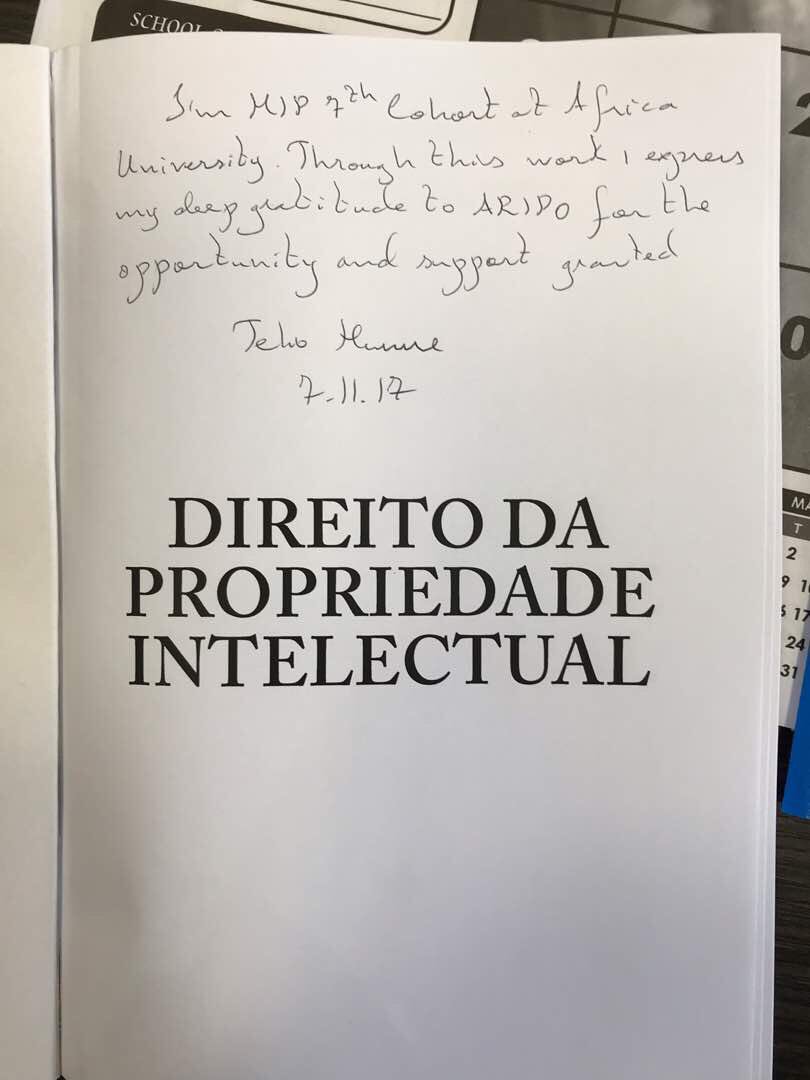 SCHOOL
I'm MIP 7th Cohort at Africa
University. Through this work I express
my deep gratitude to ARIPO for the
opportunity and support granted
7.11.17
DIREITO DA
PROPRIEDADE
INTELECTUAL
2
0
MA
T
2
9
17
24
31